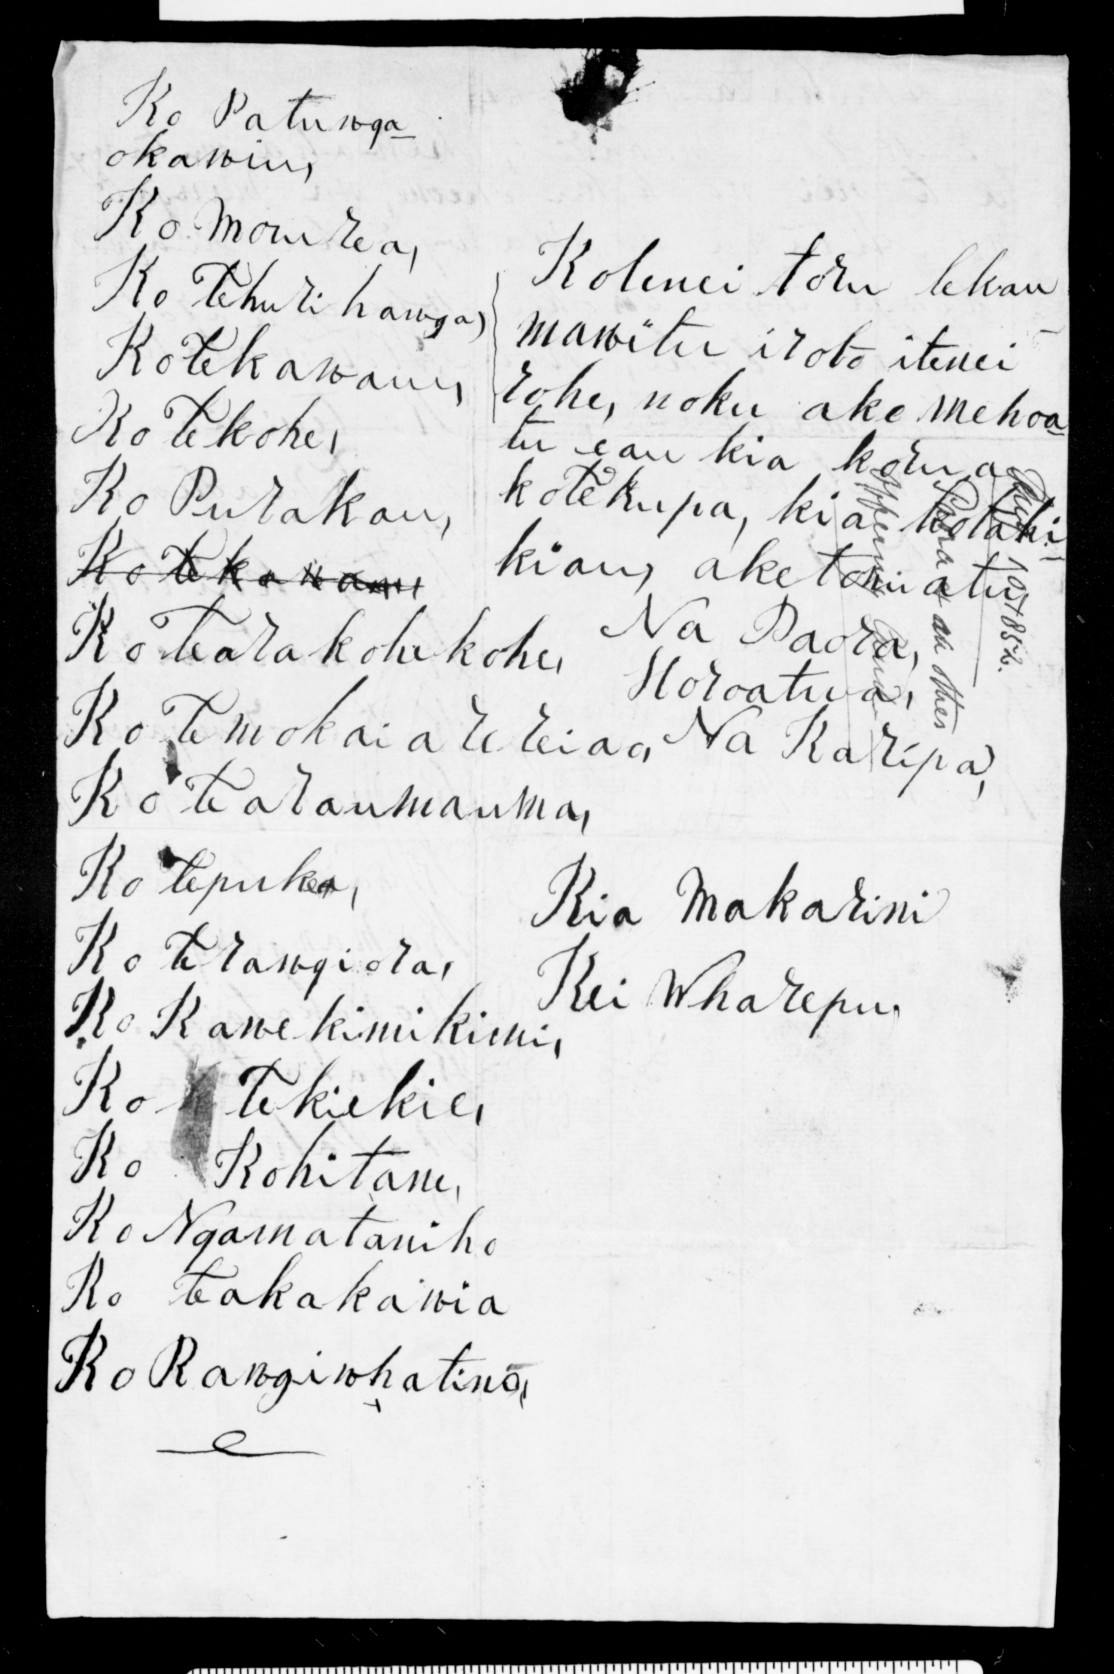 Ko Patunga
okawiu,
Ko Mourea,
Ko Tehurihanga,
Kotekawau,
Ko Tekohe,
Ko Purakau,
Ko tekawau
Ko Tearakohekohe,
Ko Temokaiarereiao,
Ko Tearaumauma,
Ko tepukea,
Ko terangiora,
Ko Kawekimikimi,
Ko Tekiekie,
Ko Kohitane,
Ko Ngamataniho
Ko teakakawia
Ko Rangiwhatino,
Kotenei toru tekau
mawitu iroto itenei
rohe, noku ake Mehoa
tu eau kia korua
kotekupa, kia kotahi
kiau, aketonuatu
Na Paora,
Horoatua,
Na Karipa,
Kia Makarini
Kei Wharepu,
Paora & an other